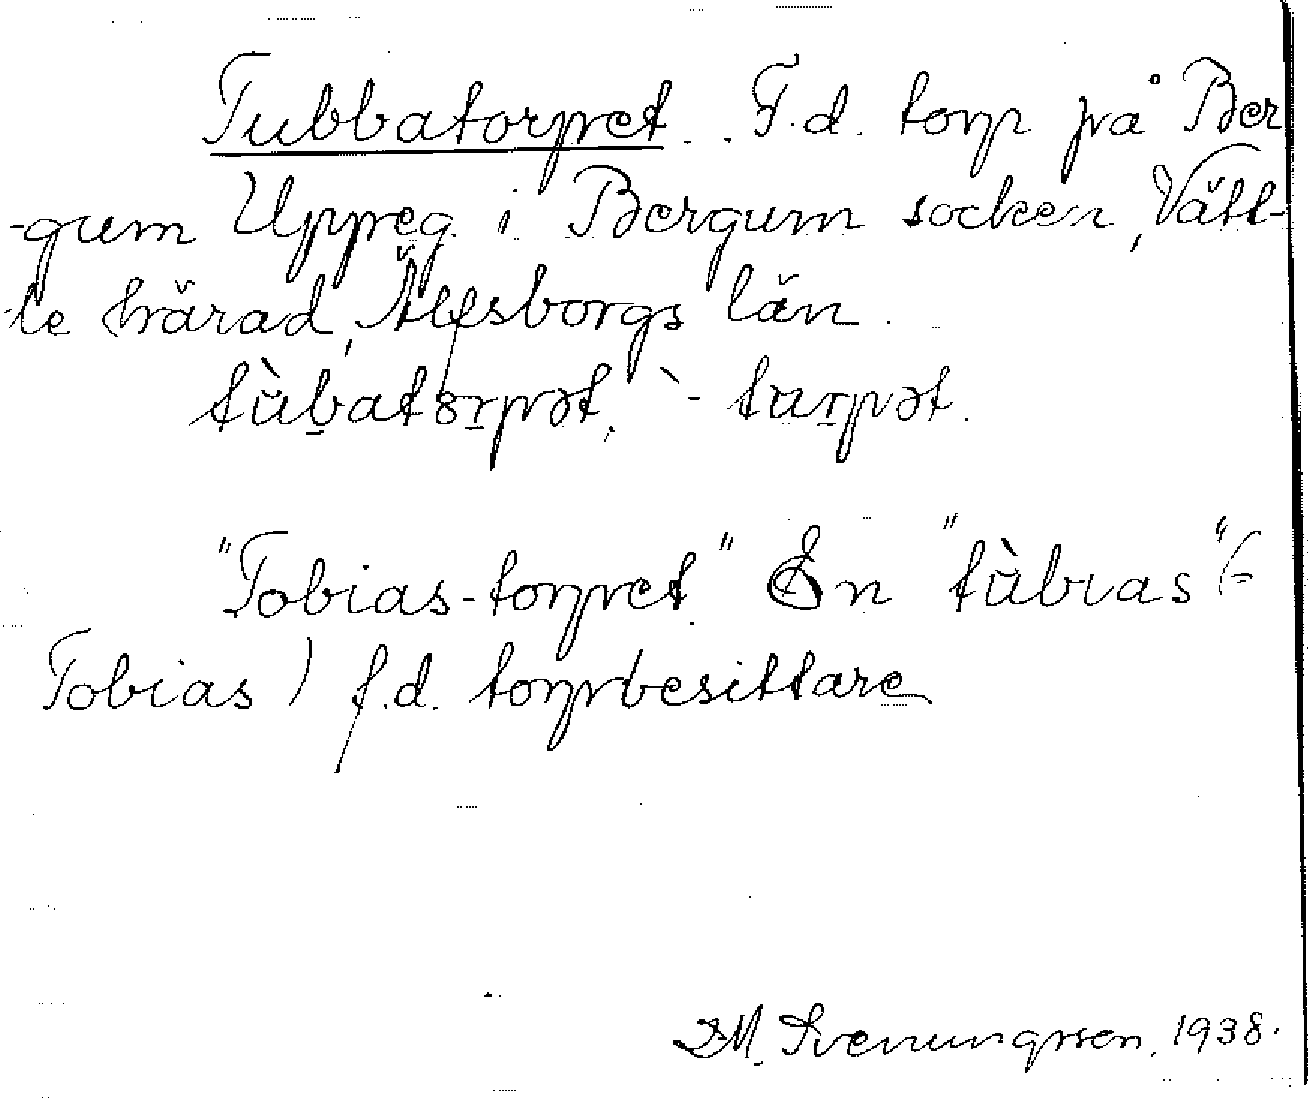 Tubbatorpet. F.d. torp på Ber
-gum Uppeg. i Bergum socken, Vätt-
-le härad, Älfsborgs län.
tùb̬atɤr̲pət, `- tur̲pət.
"Tobias-torpet." En "tùbɩas" (=
Tobias) f.d. torpbesittare
D.M. Svenungsson, 1938.